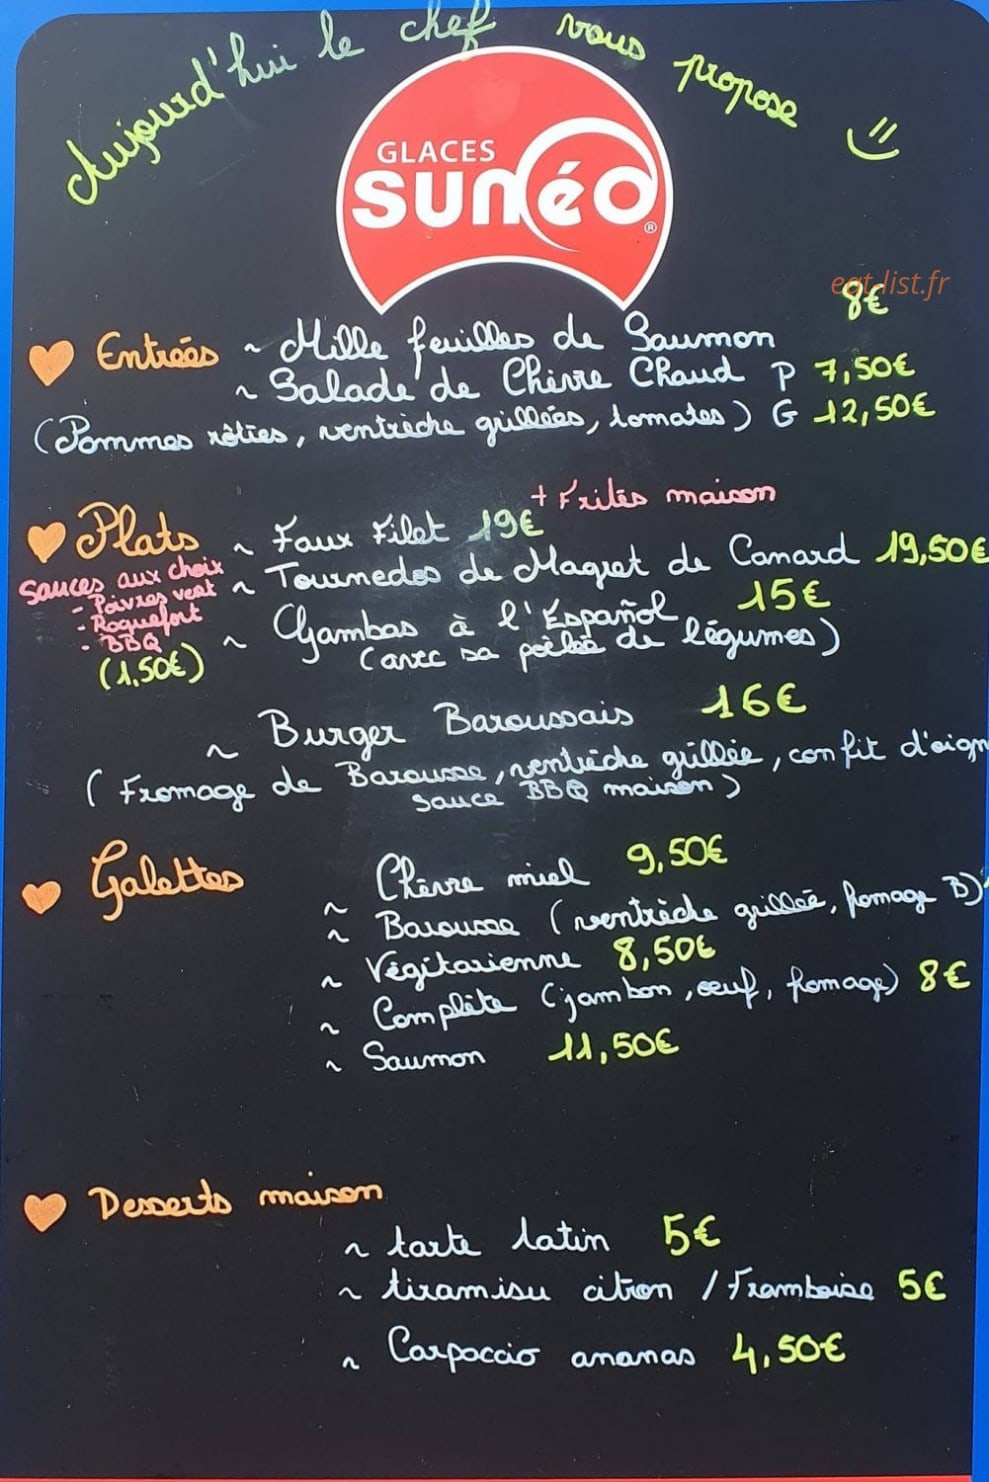 Aujourd'hui le chef vous propose
GLACES
SUNÉO
®
eat-list.fr
8€
Entrées ~ Mille feuilles de Saumon
~ Salade de Chèvre Chaud P 7,50€
(Pommes rôties, ventrèche grillées, tomates) G 12,50€
+ Frites maison
Plats ~ Faux Filet 19€
Sauces aux choix
- Poivres vert
- Roquefort
- BBQ
(1,50€)
~ Tournedos de Magret de Canard 19,50€
~ Gambas à l'Español 15€
(avec sa poêlée de légumes)
~ Burger Baroussais 16€
(Fromage de Barousse, ventrèche grillée, confit d'oign
sauce BBQ maison)
Galettes
~ Chèvre miel 9,50€
~ Barousse (ventrèche grillée, fromage B)
~ Végitarienne 8,50€
~ Complète (jambon, oeuf, fromage) 8€
~ Saumon 11,50€
Desserts maison
~ tarte tatin 5€
~ tiramisu citron / Framboise 5€
~ Carpaccio ananas 4,50€